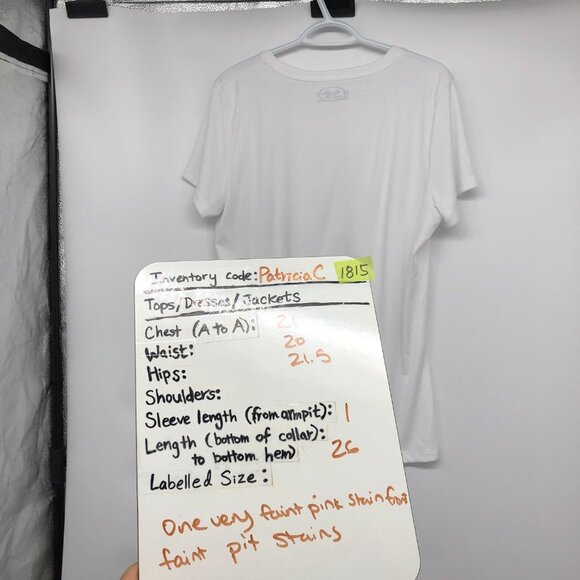 Inventory code: Patricia C 1815
Tops/Dresses/Jackets
Chest (A to A): 21
Waist: 20
Hips: 21.5
Shoulders:
Sleeve length (from armpit): 1
Length (bottom of collar):
to bottom hem) 26
Labelled Size:
One very faint pink stain front
faint pit stains